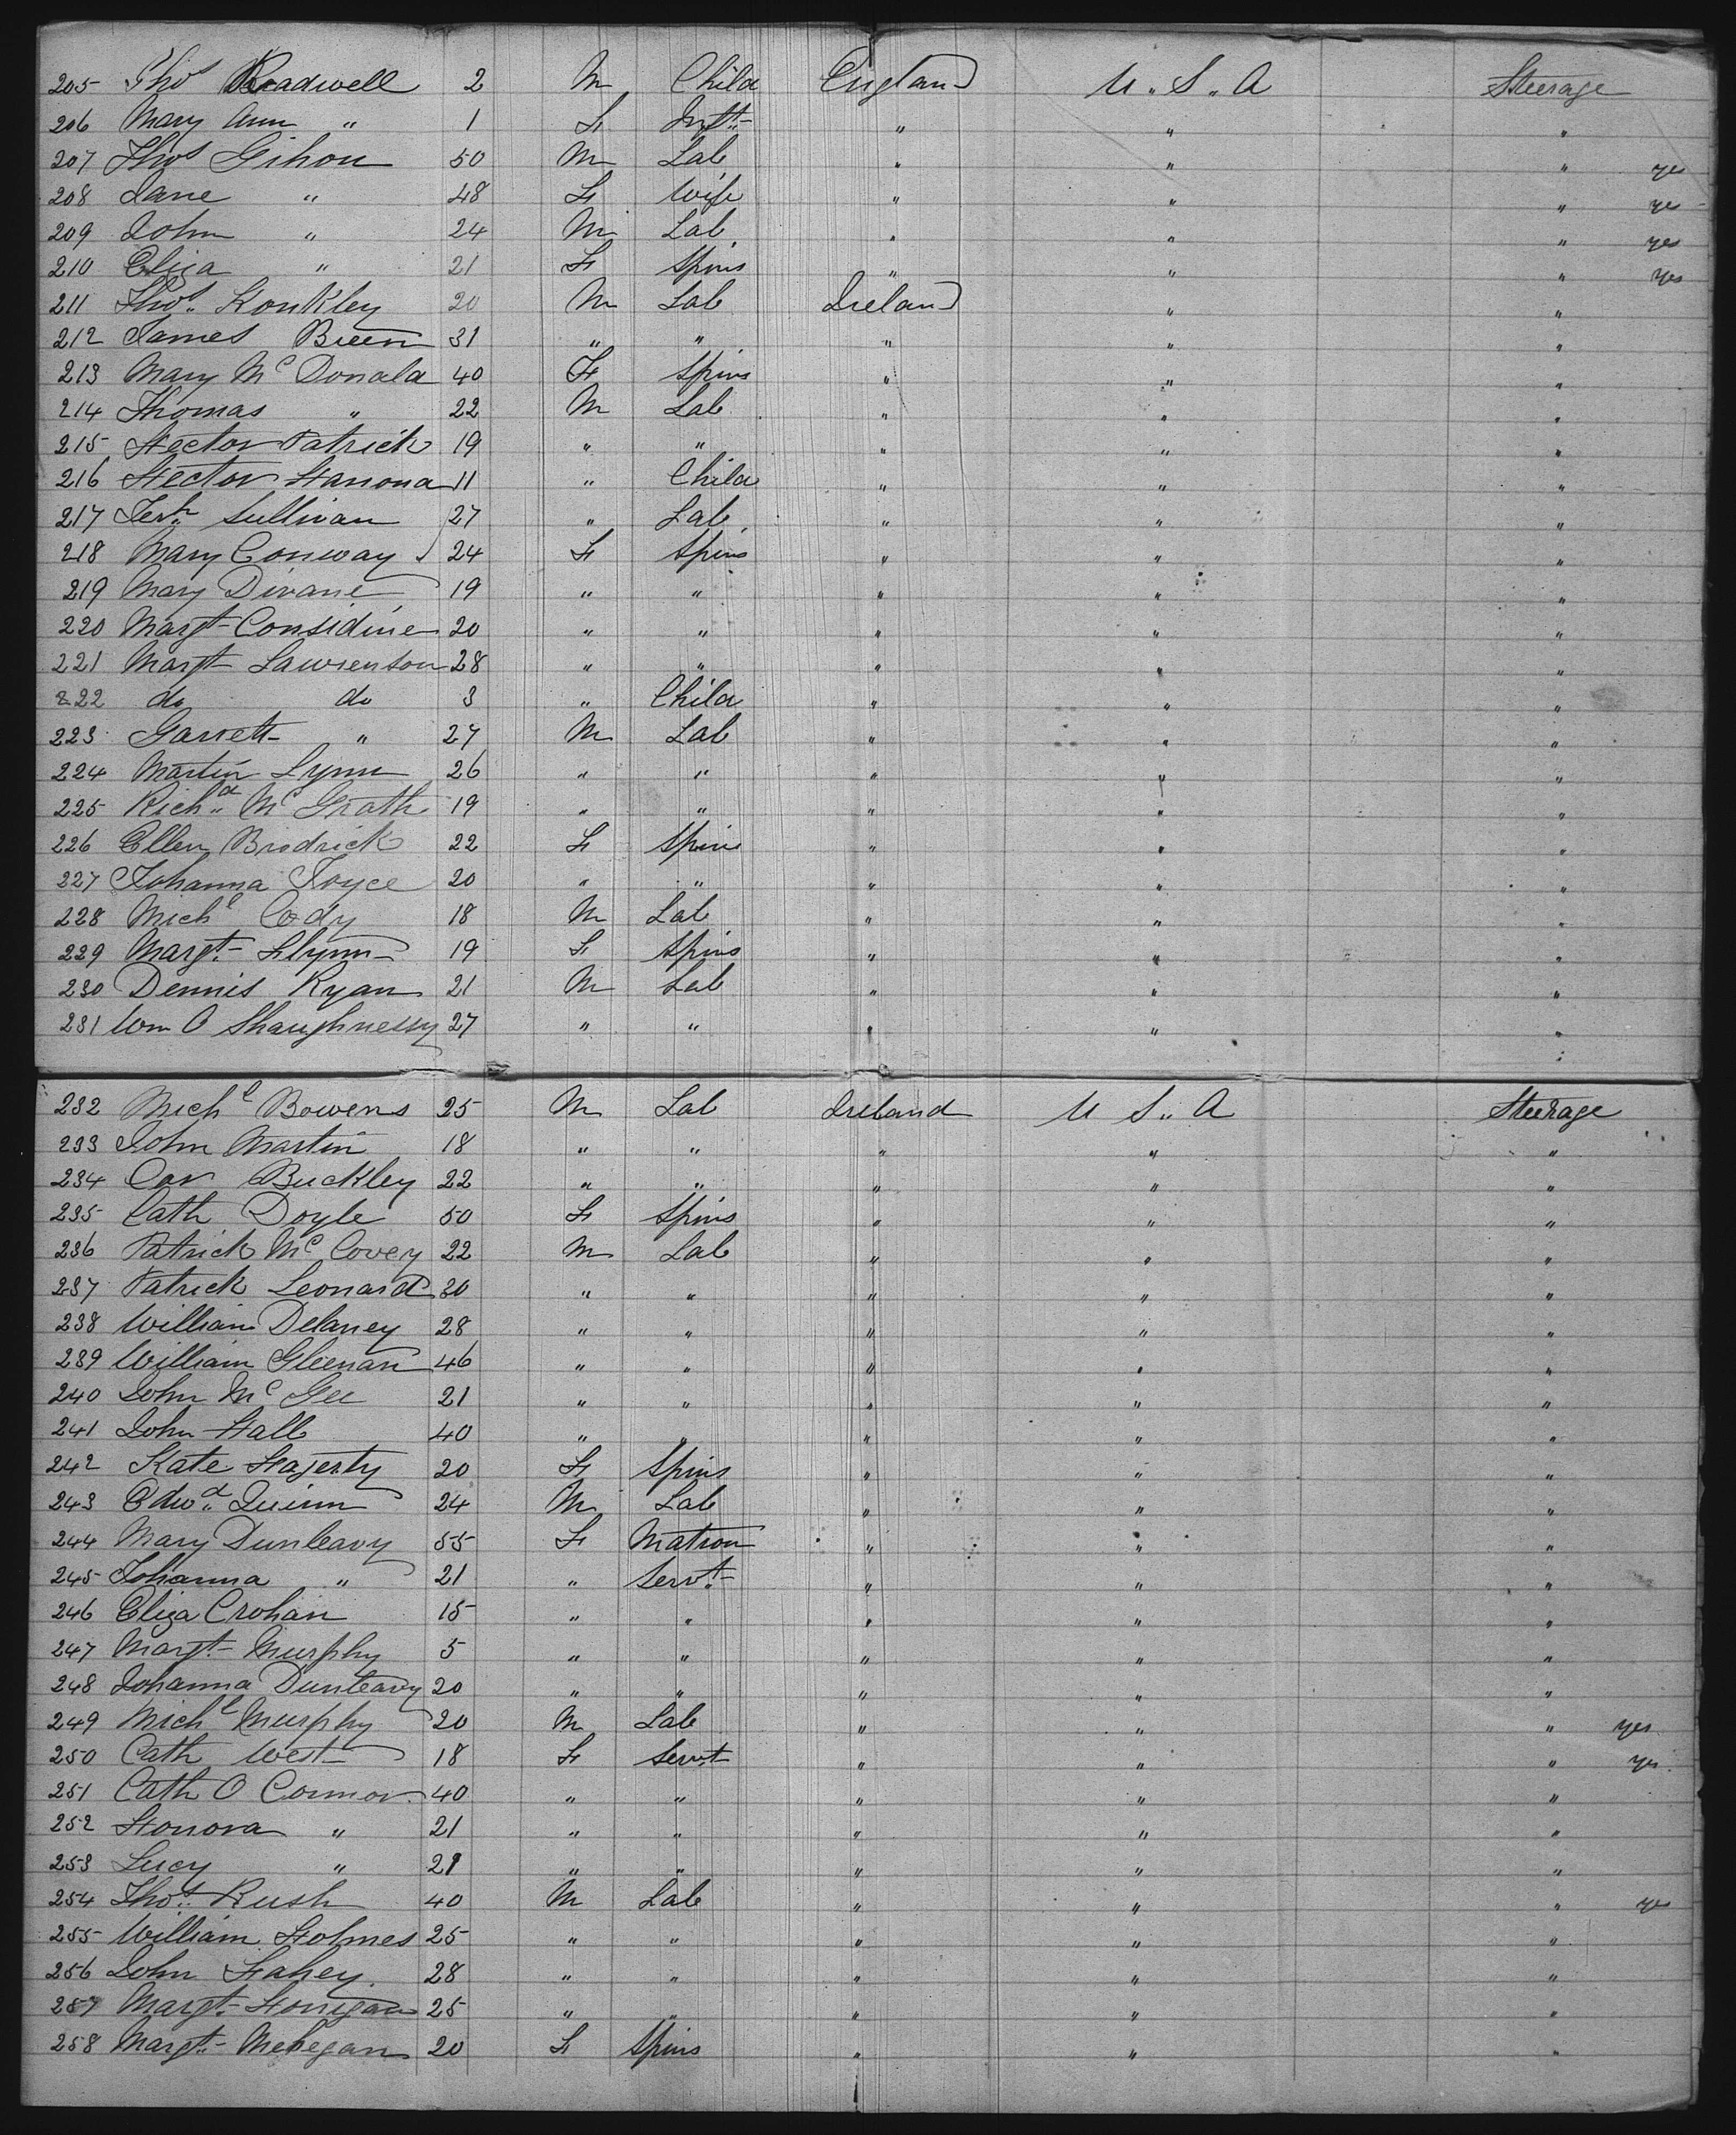 205 Thos Readwell 2 M Child England U.S.A Steerage
206 Mary Ann " 1 F Inft " " "
207 Thos Gihon 50 M Lab " " " yes
208 Jane " 48 F Wife " " " yes
209 John " 24 M Lab " " " yes
210 Eliza " 21 F Spins " " " yes
211 Thos. Konkley 20 M Lab Ireland " "
212 James Breen 31 " " " " "
213 Mary Mc Donald 40 F Spins " " "
214 Thomas " 22 M Lab " " "
215 Hector Patrick 19 " " " " "
216 Hector Hanona 11 " Child " " "
217 Jerh Sullivan 27 " Lab " " "
218 Mary Conway 24 F Spins " " "
219 Mary Divane 19 " " " " "
220 Margt Considine 20 " " " " "
221 Margt Lawrenson 28 " " " " "
222 do do 3 " Child " " "
223 Garrett " 27 M Lab " " "
224 Martin Lynn 26 " " " " "
225 Richd Mc Grath 19 " " " " "
226 Ellen Brodrick 22 F Spins " " "
227 Johanna Joyce 20 " " " " "
228 Michl Cody 18 M Lab " " "
229 Margt Flynn 19 F Spins " " "
230 Dennis Ryan 21 M Lab " " "
231 Wm O Shaughnessy 27 " " " " "
232 Michl Bowens 25 M Lab Ireland U S. A Steerage
233 John Martin 18 " " " " "
234 Con Buckley 22 " " " " "
235 Cath Doyle 50 F Spins " " "
236 Patrick Mc Covey 22 M Lab " " "
237 Patrick Leonard 30 " " " " "
238 William Delaney 28 " " " " "
239 William Gleenan 46 " " " " "
240 John Mc Gee 21 " " " " "
241 John Hall 40 " " " " "
242 Kate Hagerty 20 F Spins " " "
243 Edwd Quinn 24 M Lab " " "
244 Mary Dunleavy 55 F Matron " " "
245 Johanna " 21 " Servt " " "
246 Eliza Crohan 15 " " " " "
247 Margt Murphy 5 " " " " "
248 Johanna Dunleavy 20 " " " " "
249 Michl Murphy 20 M Lab " " " yes
250 Cath West 18 F Servt " " " yes
251 Cath O Connor 40 " " " " "
252 Honora " 21 " " " " "
253 Lucy " 21 " " " " "
254 Thos. Rush 40 M Lab " " " yes
255 William Holmes 25 " " " " "
256 John Fahey 28 " " " " "
257 Margt Honigan 25 " " " " "
258 Margt Mehegan 20 F Spins " " "